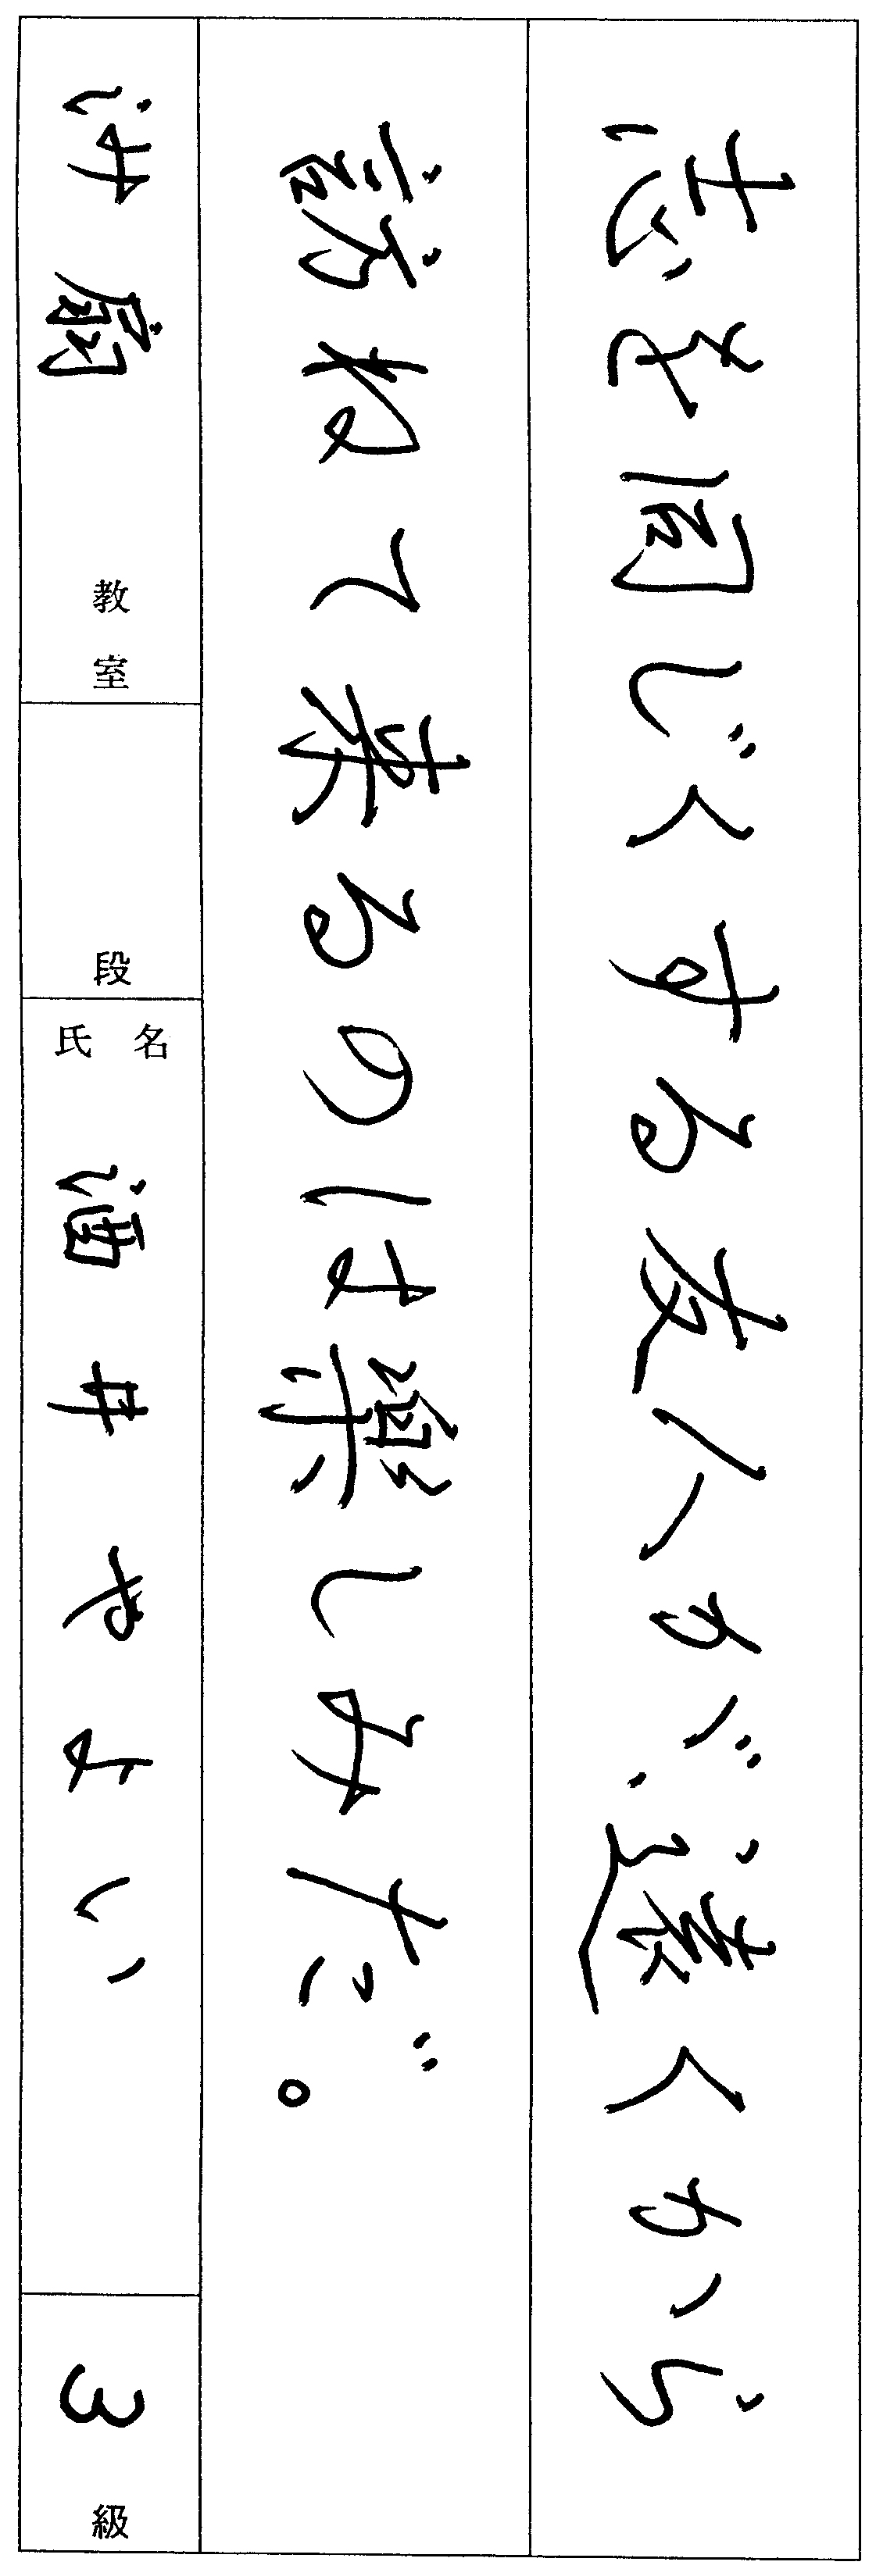 志を同じくする友人が、遠くから
訪ねて来るのは楽しみだ。
扇 教室
段
氏名 酒井やよい
3 級